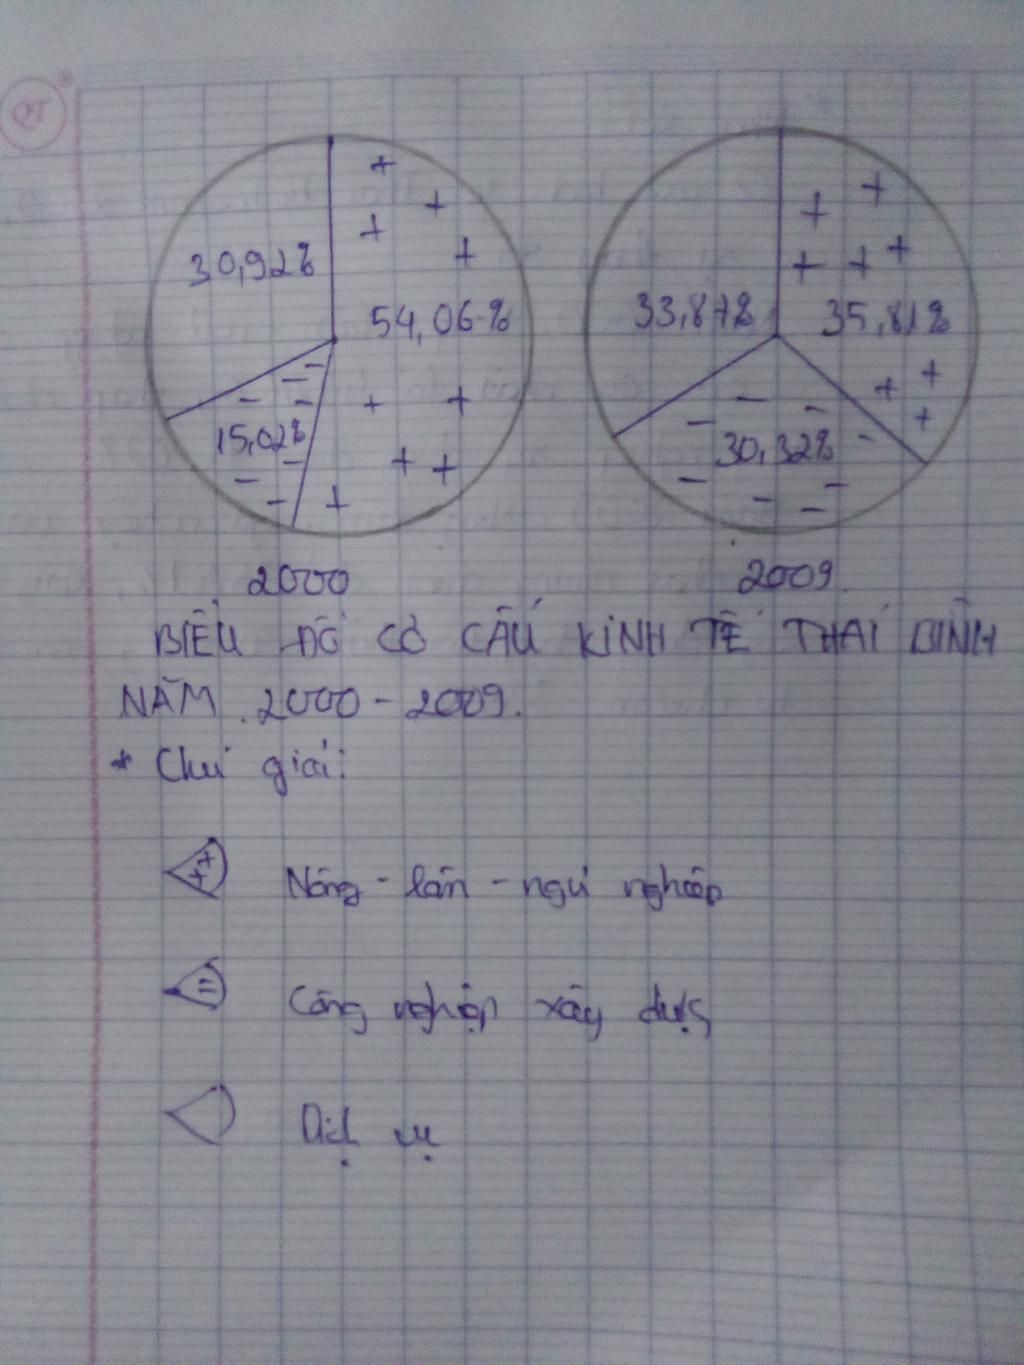 30,92%
54,06%
15,02%
33,87%
35,81%
30,32%
2000
2009
BIỂU ĐỒ CƠ CẤU KINH TẾ THÁI BÌNH
NĂM 2000 - 2009.
* Chú giải:
Nông - lâm - ngư nghiệp
Công nghiệp xây dựng
Dịch vụ